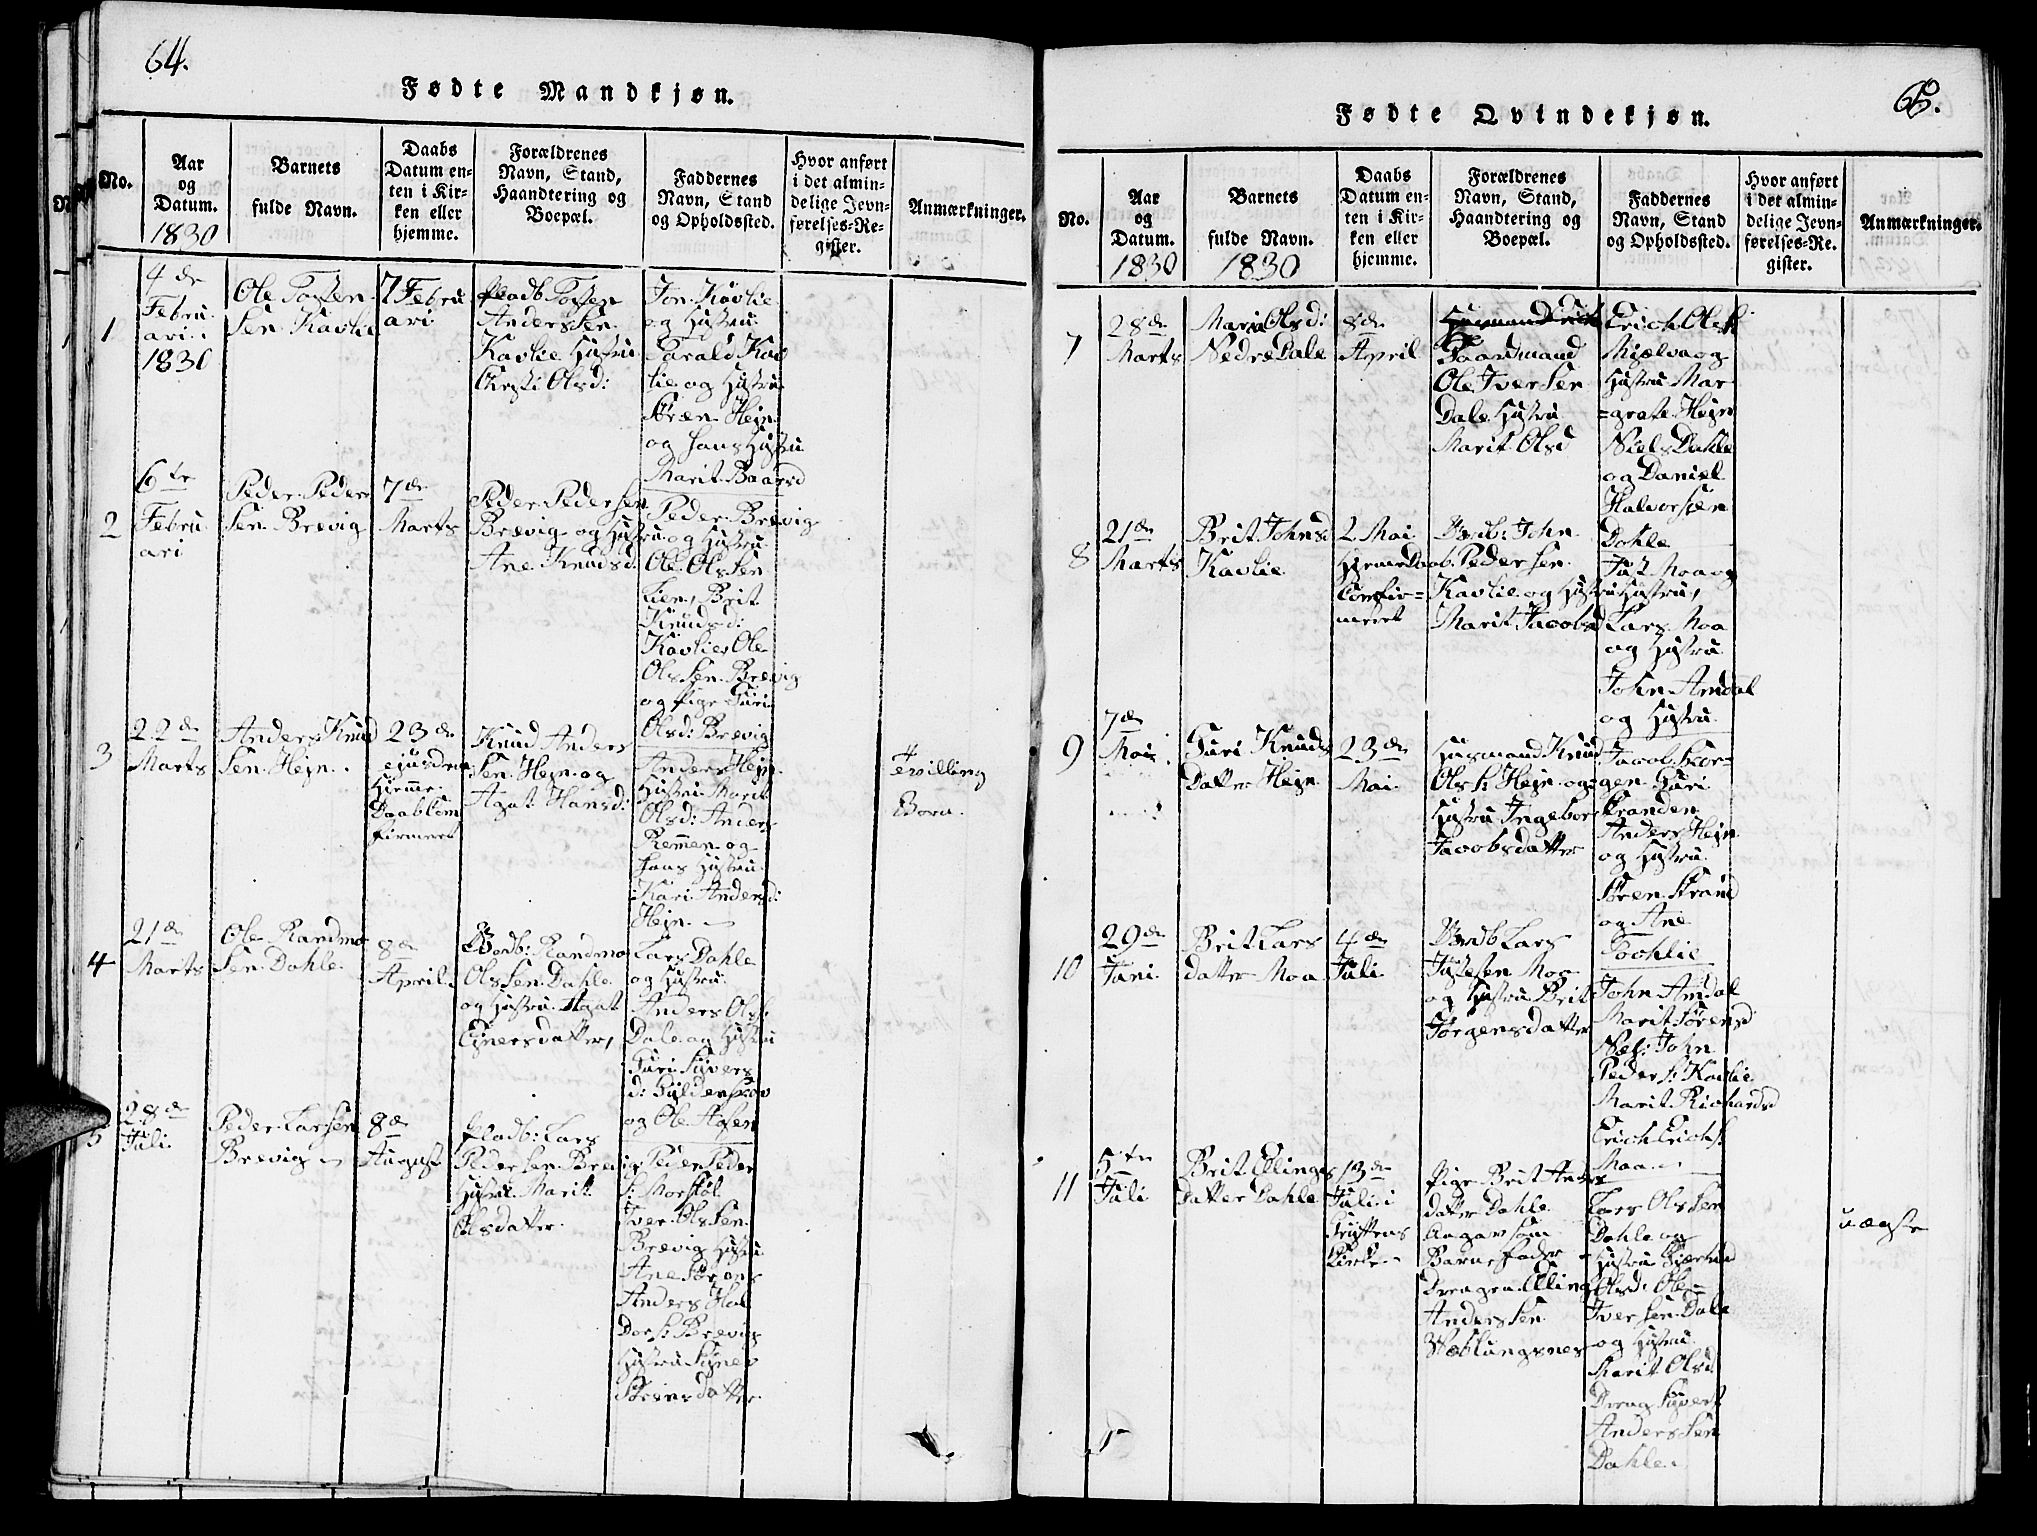 64.
Fødte Mandkjøn.
No.
Aar
og
Datum.
1830
Barnets
fulde Navn.
Daabs
Datum en-
ten i Kir-
ken eller
hjemme.
Forældrenes
Navn, Stand,
Haandtering og
Boepæl.
Faddernes
Navn, Stand
og Opholdssted.
Hvor anført
i det almin-
delige Jevn-
førelses-Re-
gister.
Anmærkninger.
1
4de
Febru
ari
1830
Ole
Sen Kavlie
7 Febru
ari
Anders Sen
Kavlie Hustru
Olsd:
Jon Kavlie
og Hustru
Kav
lie og Hustru
Hejn
og hans Hustru
Marit Baarsd
2
6te
Febru
ari
Peder Peder
Sen Brevig
7de
Marts
Peder Pedersen
Brevig og Hustru
Ane Knudsd:
Peder Brevig
og Hustru
Ole Olssen
Lien, Brit
Knudsd:
Kavlie, Ole
Olssen Brevig
og Pige Guri
Olsd: Brevig
3
22de
Marts
Anders Knud
Sen Hejn
23de
ejusdem
Hjemme
Daab Com
firmeret
Knud Anders
Sen Hejn og
Agat Hansd:
Anders Hejn
Hustru Marit
Olsd: Anders
Remmen og
hans Hustru
Kari Andersd:
Hejn
Tvilling
Born
4
21de
Marts
Ole Randmo
Sen Dahle
8de
April
Randmo
Olssen Dahle
og Hustru Agat
Ejnersdatter,
Lars Dahle
og Hustru
Anders Ols:
Dale og Hustru
Guri Sivers
d: Gyldenskov
og Ole
5
28de
Juli
Peder Larsen
Brevig
8de
August
Pladb: Lars
Pedersen Brevig
Hustru Marit
Olsdatter
Peder Peder
s: Morstøl
Iver Olssen
Brevig Hustru
Ane
Anders Hal
Dors: Brevig
Hustru
datter
65.
Fødte Qvindekjøn.
No.
Aar
og
Datum.
1830
Barnets
fulde Navn.
1830
Daabs
Datum en-
ten i Kir-
ken eller
hjemme.
Forældrenes
Navn, Stand,
Haandtering og
Boepæl.
Faddernes
Navn, Stand
og Opholdssted.
Hvor anført
i det almin-
delige Jevn-
førelses-Re-
gister.
Anmærkninger.
7
28de
Marts
Mari Olsd:
Nedre Dale
8de
April
Gaardmand
Ole Iversen
Dale Hustru
Marit Olsd
Erich Ols
Mjelva og
Hustru Mar
=grete Hejn
Niels Dahle
og Daniel
Halvorsen
Dahle
8
21de
Marts
Brit Johnsd
Kavlie
2 Mai
Hjemedaab
Confir=
meret
John
Pedersen
Kavlie og Hustru
Marit Jacobsd
Just Moa og
Hustru,
Lars Moa
og Hustru
John Amdal
og Hustru
9
7de
Mai
Guri Knuds
Datter Hejn
23de
Mai
Husmand Knud
Ols: Hejn og
Hustru Ingebor
Jacobsdatter
Jacob Skor=
gen Guri
Stranden
Anders Hejn
og Hustru
Søren Strand
og Ane
10
29de
Juni
Brit Lars
datter Moa
4de
Juli
Lars
Justesen Moa
og Hustru Brit
Jørgensdatter
John Amdal
Marit Sørensd
Næs: John
Peders: Kavlie
Marit Richardsd
Erich Erichs:
Moa
11
5te
Juli
Brit Ellings
Datter Dahle
Juli i
Kirke
Pige Brit Anders
datter Dahle
Angav som
Barnefader
Drengen Elling
Anderssen
Veblungsnes
Lars Olssen
Dahle og
Hustru
Olsd: Ole
Iversen Dale
og Hustru
Marit Olsd
Dreng Sivert
Anderssen
Dahle
uægte